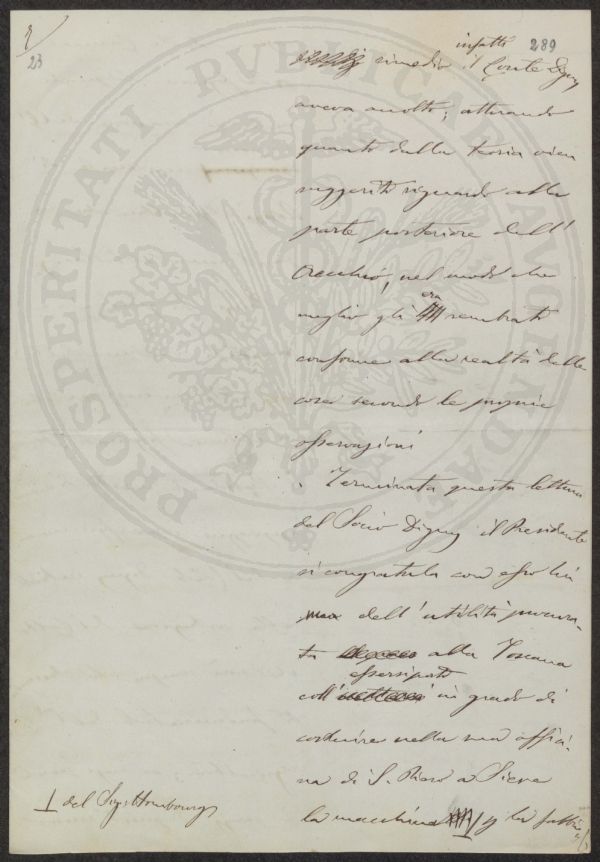 2/
23
289
infatti
rimedio il Conte Digny
aveva molto; attenendo
quanto dalla teoria vien
suggerito riguardo alla
parte posteriore dell'
Orecchio, nel modo che
era
meglio gli sembrato
conforme alla realtà delle
cose secondo le proprie
osservazioni
Terminata questa lettura
del Socio Digny il Presidente
si congratula con esso lui
dell'utilità procura-
ta alla Toscana
essersi posto
coll' in grado di
costruire nella sua offici-
na di S. Piero a Sieve
la macchina p la fabbri
⊥ del Sigr Hombourg
PROSPERITATI PUBLICAE AUGENDAE